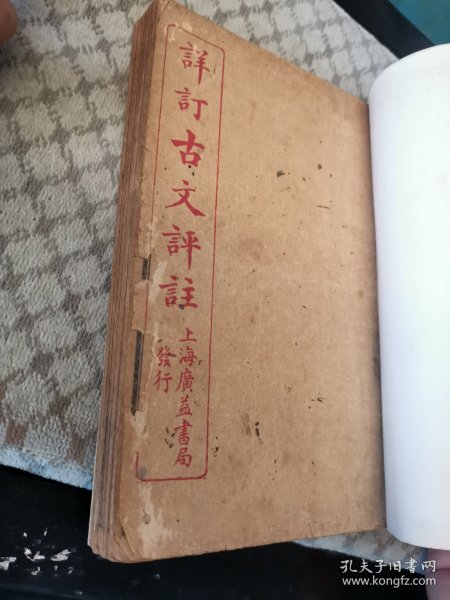 詳訂古文評註
上海廣益書局
發行
孔夫子旧书网
www.kongfz.com